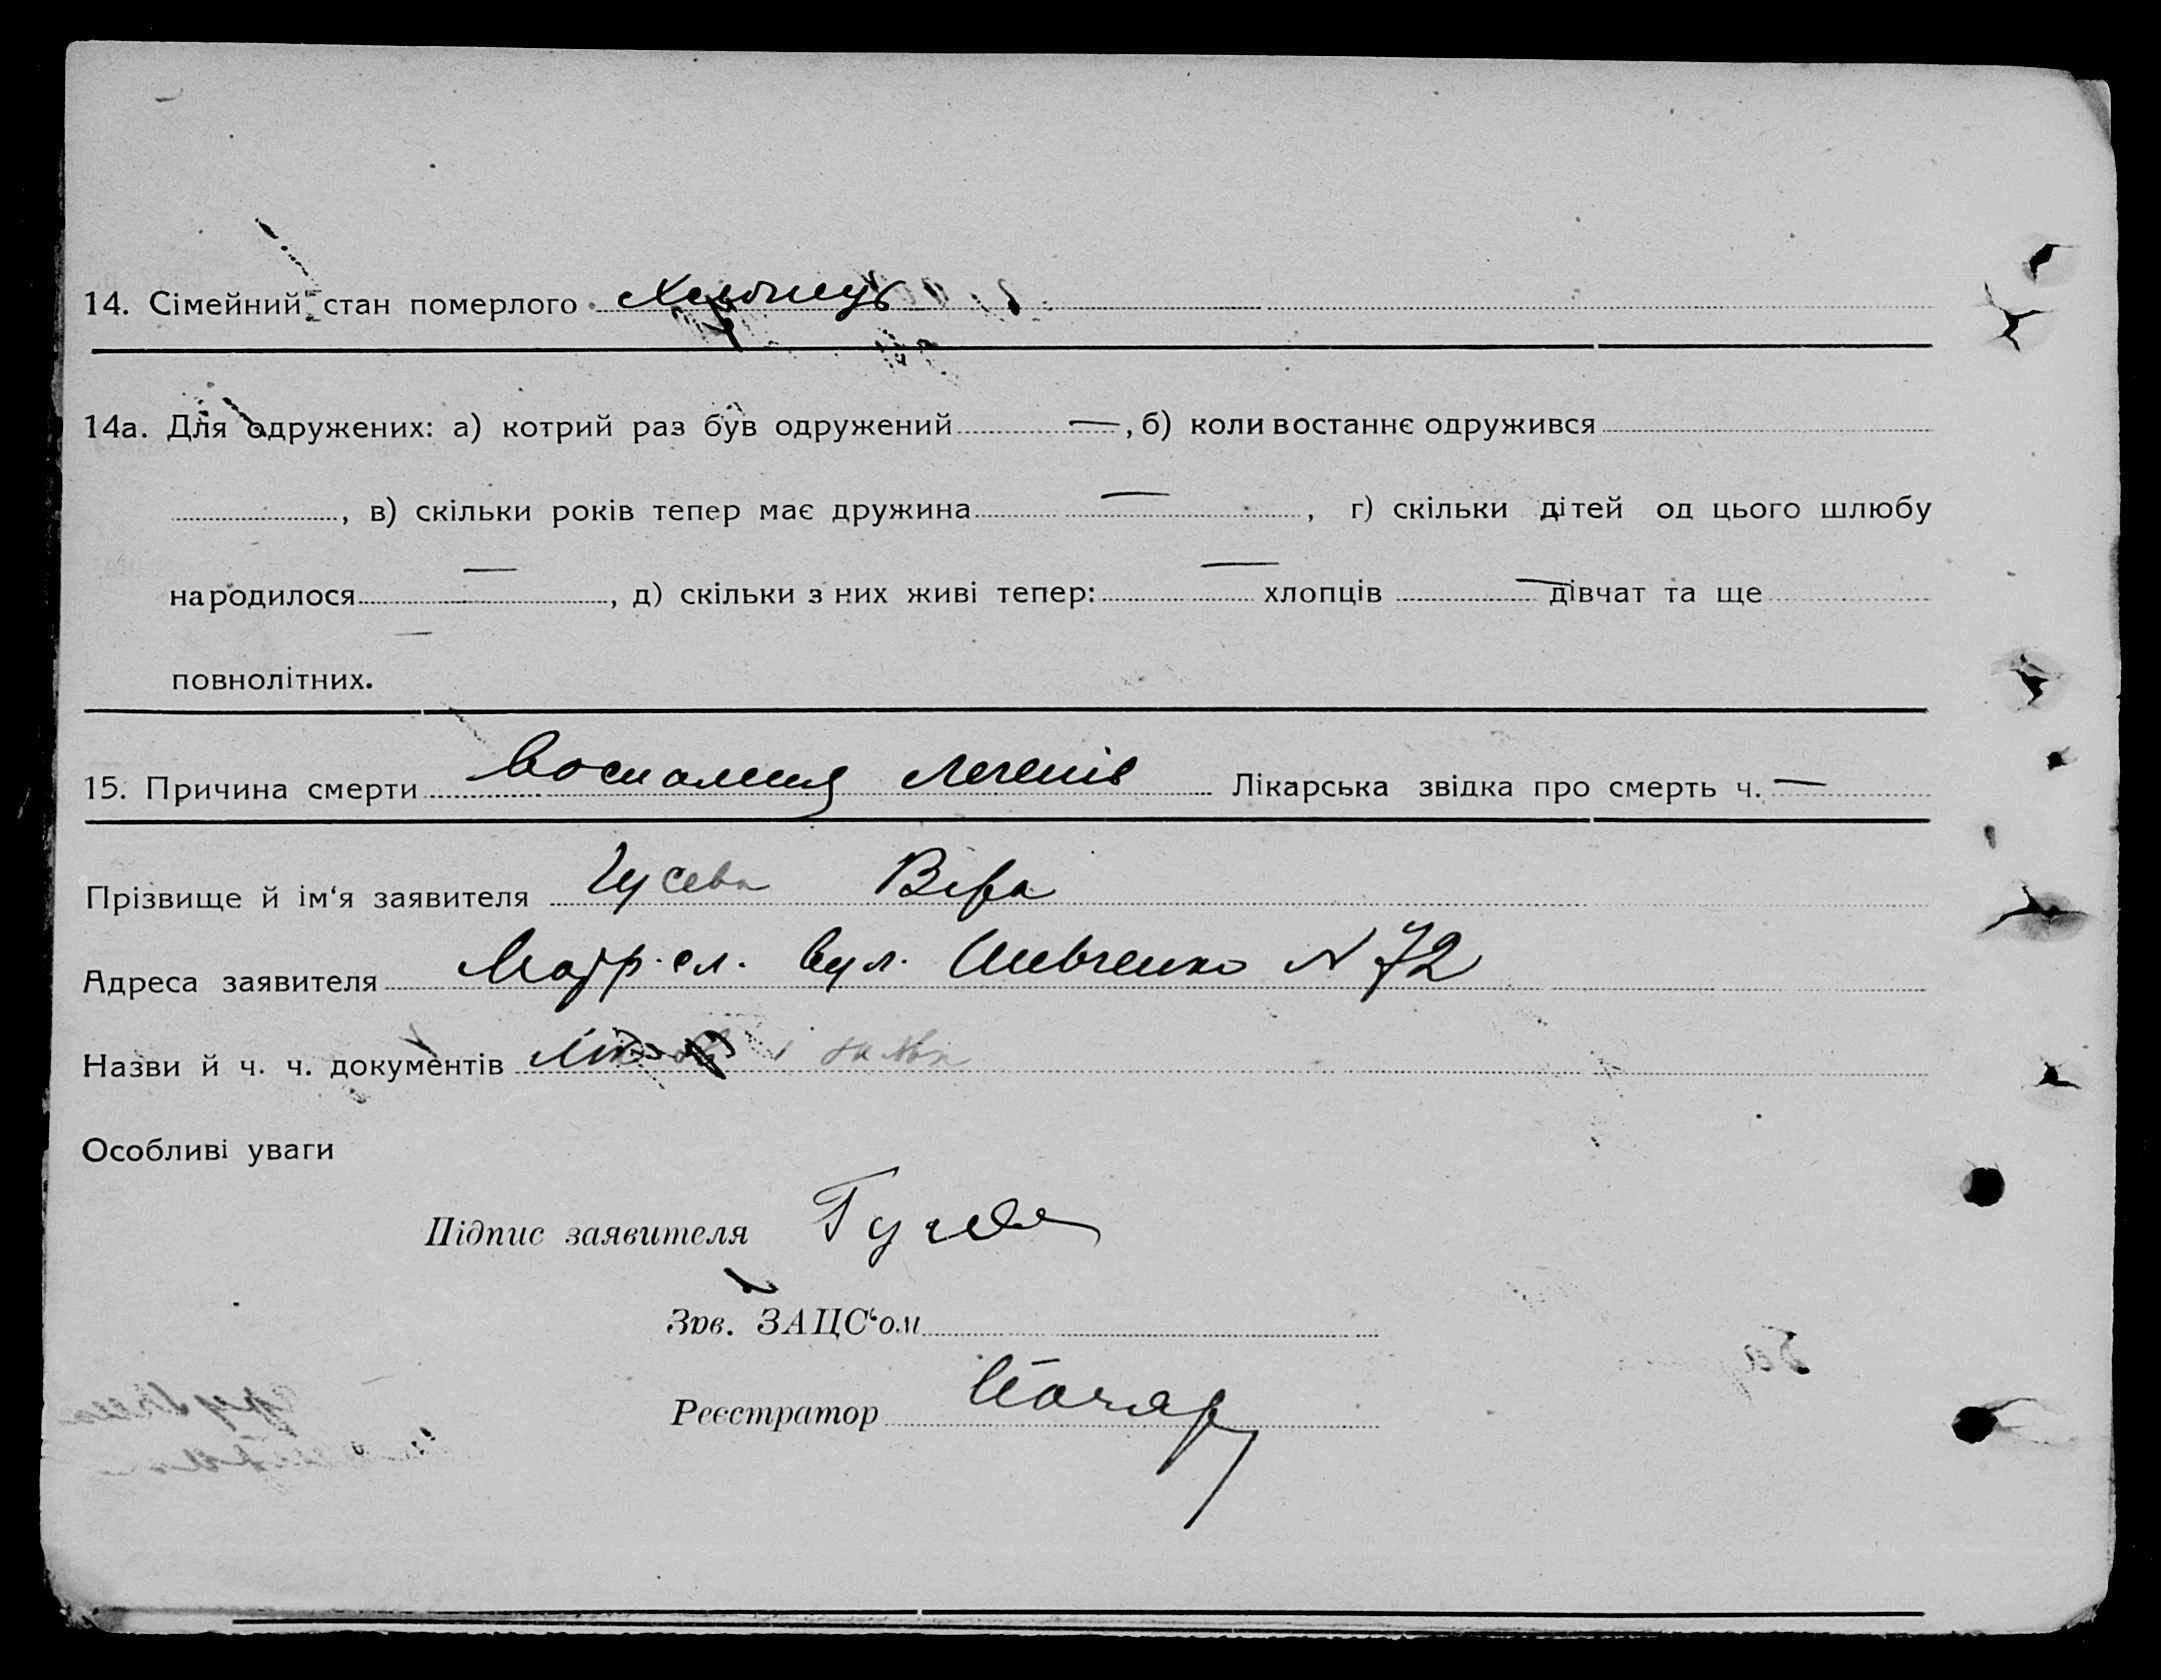 14. Сімейний стан померлого Хлопець
14а. Для одружених: а) котрий раз був одружений —, б) коли востаннє одружився
, в) скільки років тепер має дружина —, г) скільки дітей од цього шлюбу
народилося —, д) скільки з них живі тепер: — хлопців — дівчат та ще
— повнолітних.
15. Причина смерти Воспаления легенів Лікарська звідка про смерть ч. —
Прізвище й ім'я заявителя Гусева Віра
Адреса заявителя сл. вул. Шевченко N 72
Назви й ч. ч. документів
Особливі уваги
Підпис заявителя
Зав. ЗАЦС'ом
Реєстратор